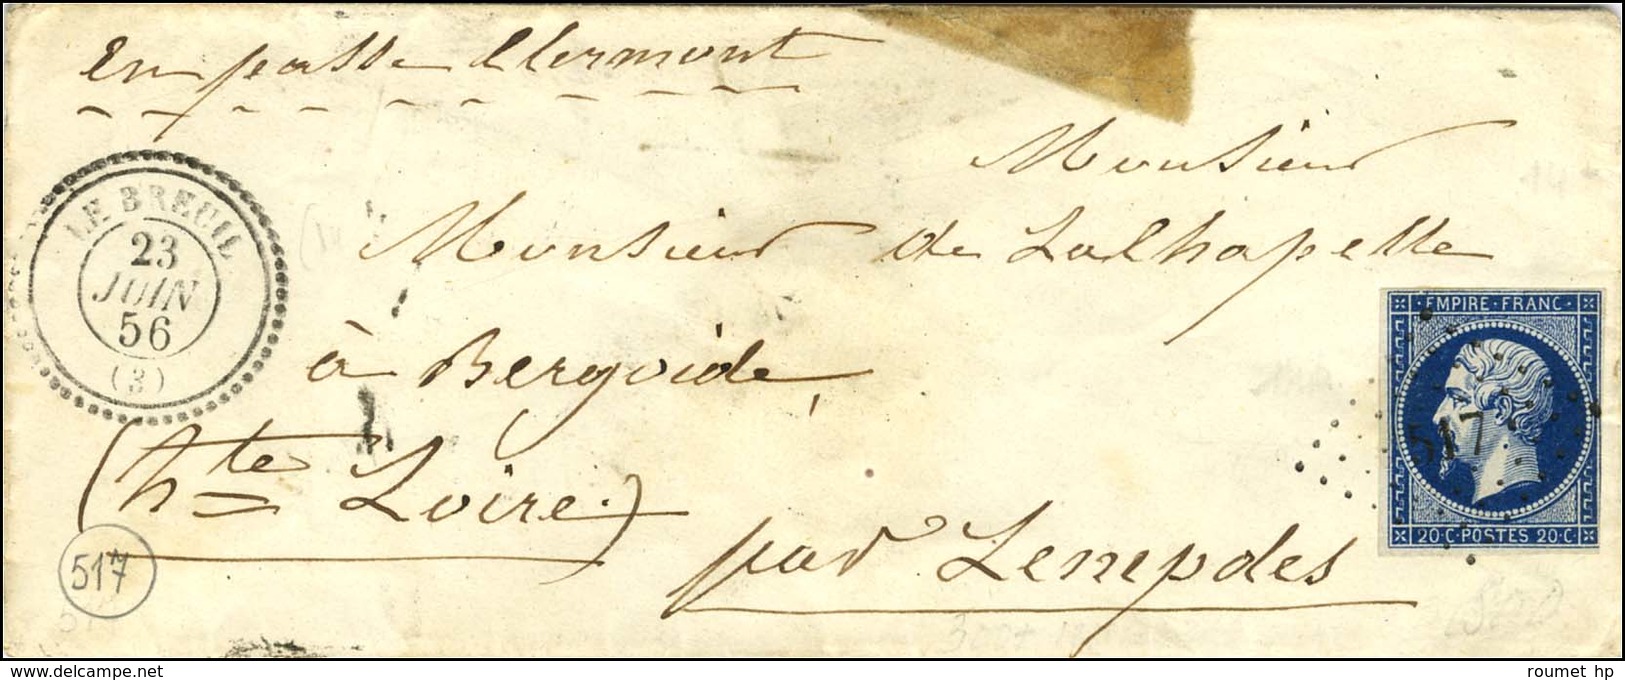 En passe Clermont
Monsieur
Monsieur de Lalhapelle
à Bergoide,
(hte Loire)
par Lempdes
LE BREUIL
23
JUIN
56
(3)
EMPIRE FRANC
517
20·C·POSTES 20·C·
517
roumet hp